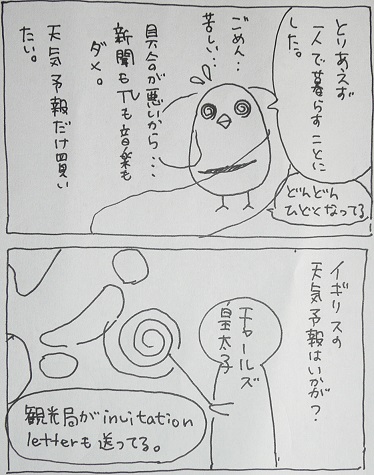 とりあえず
一人で暮らすことに
した。
ごめん…
苦しい…
具合が悪いから…
新聞もTVも音楽も
ダメ。
天気予報だけ買い
たい。
どんどん
ひどくなってる
イギリスの
天気予報はいかが?
チャールズ
皇太子
観光局がinvitation
letterも送ってる。